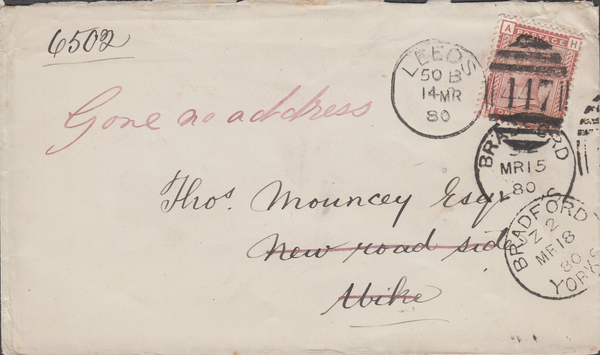 6502
A POSTAGE H
LEEDS
50 B
14 MR
80
447
Gone no address
BRADFORD
MR 15
80
Thos. Mouncey Esqr
New road side
Wike
BRADFORD YORKS
Z 2
MR 18
80